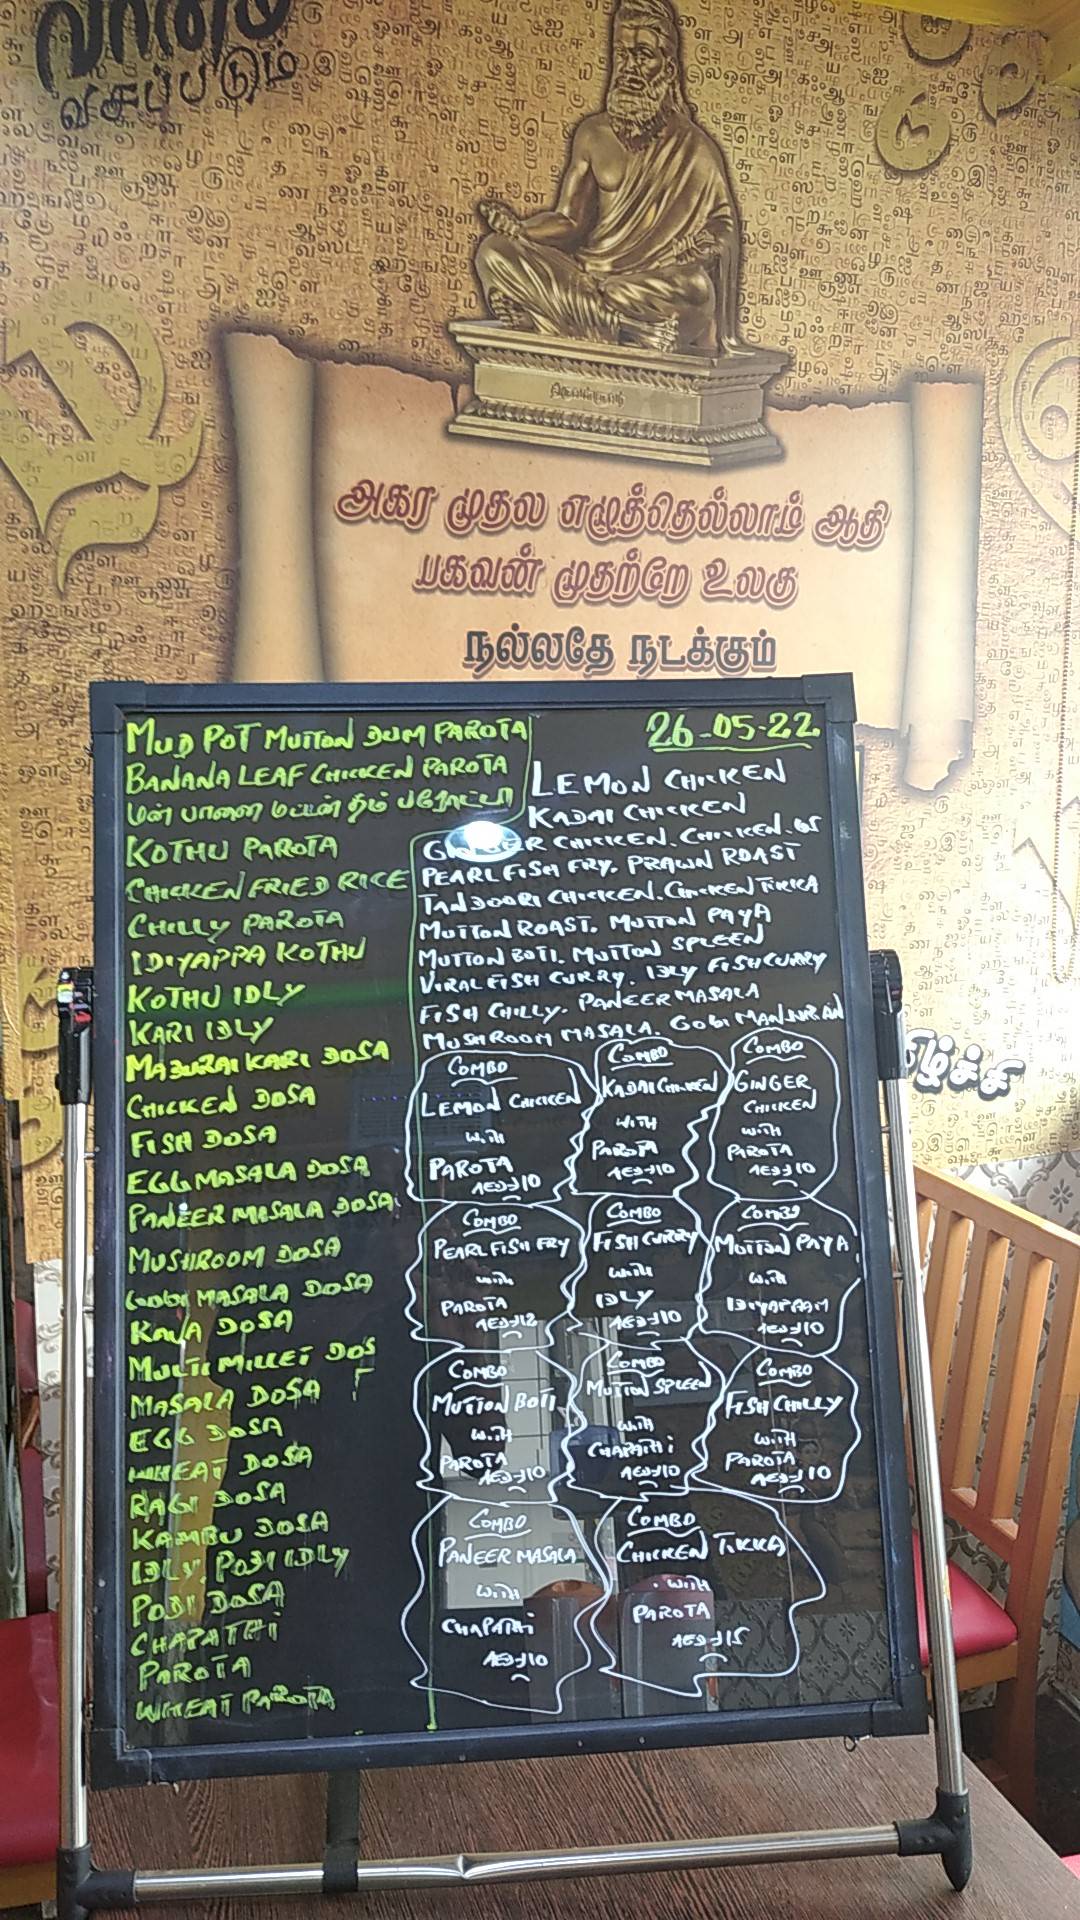 வானம்
வசப்படும்
அகர முதல எழுத்தெல்லாம் ஆதி
பகவன் முதற்றே உலகு
நல்லதே நடக்கும்
26-05-22
MUD POT MUTTON DUM PAROTA
BANANA LEAF CHICKEN PAROTA
மன் பானை மட்டன் தம் பரோட்டா
KOTHU PAROTA
CHICKEN FRIED RICE
CHILLY PAROTA
IDIYAPPA KOTHU
KOTHU IDLY
KARI IDLY
MADURAI KARI DOSA
CHICKEN DOSA
FISH DOSA
EGG MASALA DOSA
PANEER MASALA DOSA
MUSHROOM DOSA
GOBI MASALA DOSA
KAL DOSA
MULTI MILLET DOS
MASALA DOSA
EGG DOSA
WHEAT DOSA
RAGI DOSA
KAMBU DOSA
IDLY. PODI IDLY
PODI DOSA
CHAPATHI
PAROTA
WHEAT PAROTA
LEMON CHICKEN
KADAI CHICKEN
GINGER CHICKEN. CHICKEN.65
PEARL FISH FRY. PRAWN ROAST
TANDOORI CHICKEN. CHICKEN TIKKA
MUTTON ROAST. MUTTON PAYA
MUTTON BOTI. MUTTON SPLEEN
VIRAL FISH CURRY. IDLY FISH CURRY
FISH CHILLY. PANEER MASALA
MUSHROOM MASALA. GOBI
COMBO
LEMON CHICKEN
WITH
PAROTA
AED 10
COMBO
KADAI CHICKEN
WITH
PAROTA
AED 10
COMBO
GINGER
CHICKEN
WITH
PAROTA
AED 10
COMBO
PEARL FISH FRY
WITH
PAROTA
AED 12
COMBO
FISH CURRY
WITH
IDLY
AED 10
COMBO
MUTTON PAYA
WITH
IDIYAPPAM
AED 10
COMBO
MUTTON BOTI
WITH
PAROTA
AED 10
COMBO
MUTTON SPLEEN
WITH
CHAPATHI
AED 10
COMBO
FISH CHILLY
WITH
PAROTA
AED 10
COMBO
PANEER MASALA
WITH
CHAPATHI
AED 10
COMBO
CHICKEN TIKKA
WITH
PAROTA
AED 15